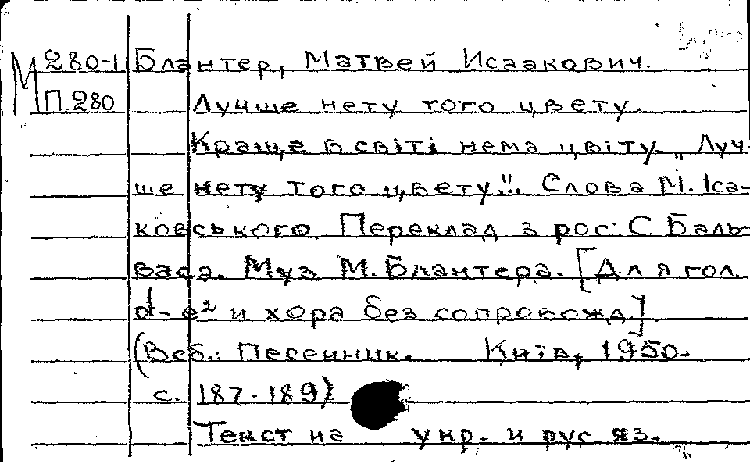 М 280-1 Блантер, Матвей Исаакович.
П.280 Лучше нету того цвету.
Краще в світі нема цвіту. "Луч-
ше нету того цвету". Слова М. Іса-
ковського. Переклад з рос. С. Баль-
васа. Муз. М. Блантера. [Для гол.
d-e² и хора без сопровожд.]
(В сб.: Песенник. Київ, 1950.
с. 187-189)
Текст на укр. и рус яз.